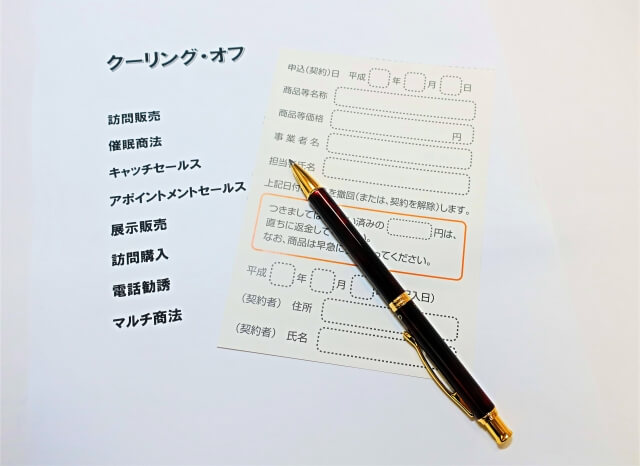 クーリング・オフ
訪問販売
催眠商法
キャッチセールス
アポイントメントセールス
展示販売
訪問購入
電話勧誘
マルチ商法
申込(契約)日 平成 年 月 日
商品等名称
商品等価格 円
事業者名
担当 氏名
上記日付 を撤回(または、契約を解除)します。
つきましては 済みの 円は、
直ちに返金して 。
なお、商品は早急に ってください。
平成 年 月 入日)
(契約者) 住所
(契約者) 氏名